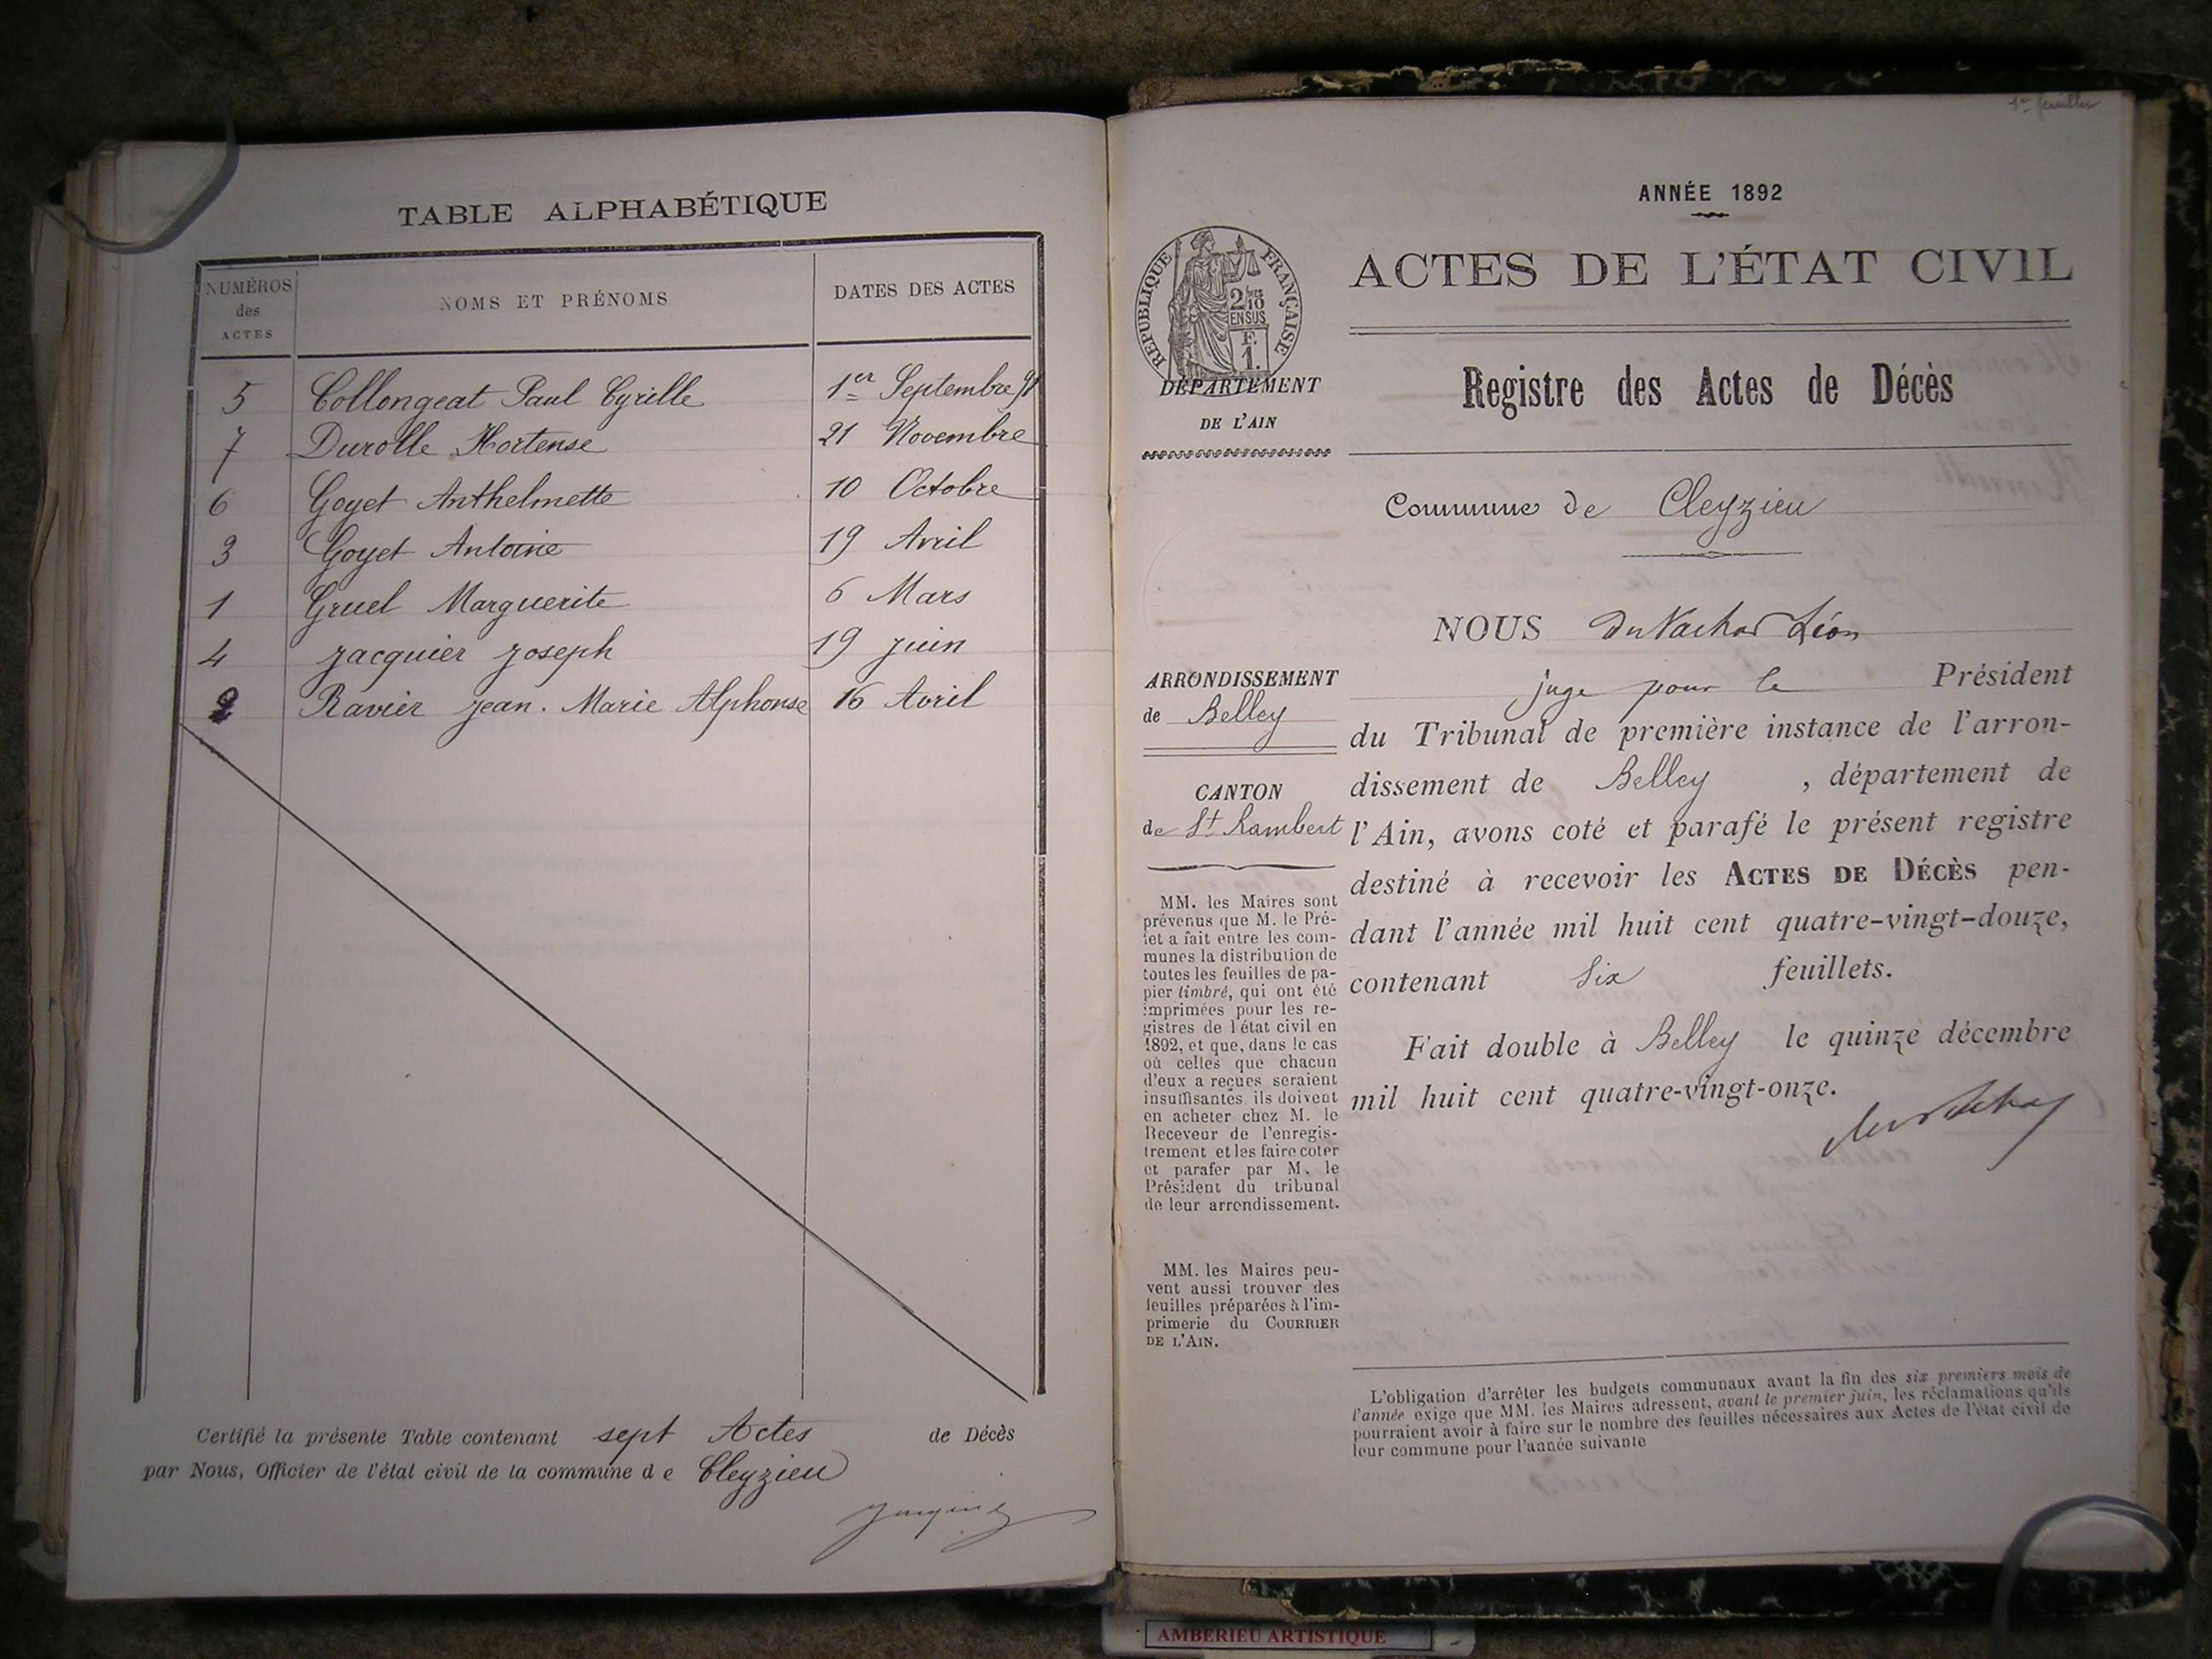 TABLE ALPHABÉTIQUE
NUMÉROS
des
ACTES
NOMS ET PRÉNOMS
DATES DES ACTES
5 Collongeat Paul Cyrille 1er Septembre 91
7 Durolle Hortense 21 Novembre
6 Goyet Anthelmette 10 Octobre
3 Goyet Antoine 19 Avril
1 Gruel Marguerite 6 Mars
4 Jacquier Joseph 19 Juin
2 Ravier Jean. Marie Alphonse 16 Avril
Certifié la présente Table contenant sept Actes de Décès
par Nous, Officier de l'état civil de la commune de Cleyzieu
ANNÉE 1892
RÉPUBLIQUE FRANÇAISE
2/10
EN SUS
F.
1.
ACTES DE L'ÉTAT CIVIL
DÉPARTEMENT
DE L'AIN
Registre des Actes de Décès
Commune de Cleyzieu
NOUS Léon
juge pour le Président
ARRONDISSEMENT
de Belley
du Tribunal de première instance de l'arron-
dissement de Belley , département de
CANTON
de St Rambert
l'Ain, avons coté et parafé le présent registre
destiné à recevoir les ACTES DE DÉCÈS pen-
dant l'année mil huit cent quatre-vingt-douze,
contenant Six feuillets.
Fait double à Belley le quinze décembre
mil huit cent quatre-vingt-onze.
MM. les Maires sont
prévenus que M. le Pré-
fet a fait entre les com-
munes la distribution de
toutes les feuilles de pa-
pier timbré, qui ont été
imprimées pour les re-
gistres de l'état civil en
1892, et que, dans le cas
où celles que chacun
d'eux a reçues seraient
insuffisantes, ils doivent
en acheter chez M. le
Receveur de l'enregis-
trement et les faire coter
et parafer par M. le
Président du tribunal
de leur arrondissement.
MM. les Maires peu-
vent aussi trouver des
feuilles préparées à l'im-
primerie du COURRIER
DE L'AIN.
L'obligation d'arrêter les budgets communaux avant la fin des six premiers mois de
l'année exige que MM. les Maires adressent, avant le premier juin, les réclamations qu'ils
pourraient avoir à faire sur le nombre des feuilles nécessaires aux Actes de l'état civil de
leur commune pour l'année suivante
AMBERIEU ARTISTIQUE